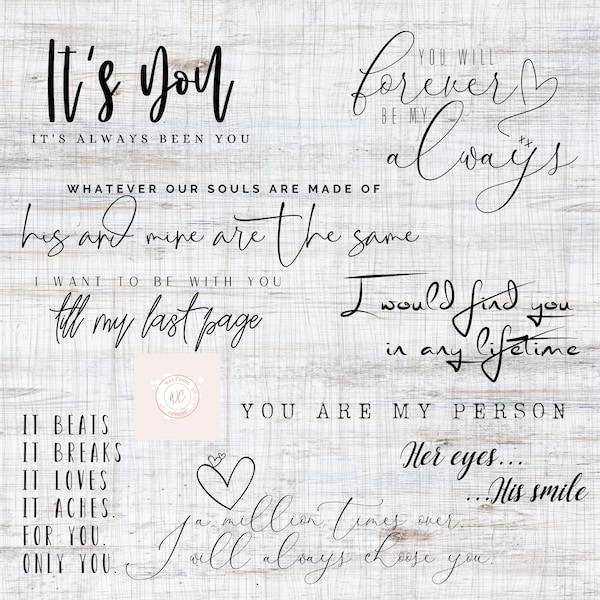 It's you
IT'S ALWAYS BEEN YOU
YOU WILL
forever
BE MY
xx
always
WHATEVER OUR SOULS ARE MADE OF
his and mine are the same
I WANT TO BE WITH YOU
till my last page
I would find you
in any lifetime
WC
YOU ARE MY PERSON
IT BEATS
IT BREAKS
IT LOVES
IT ACHES.
FOR YOU.
ONLY YOU.
Her eyes...
...His smile
a million times over.
I will always choose you.